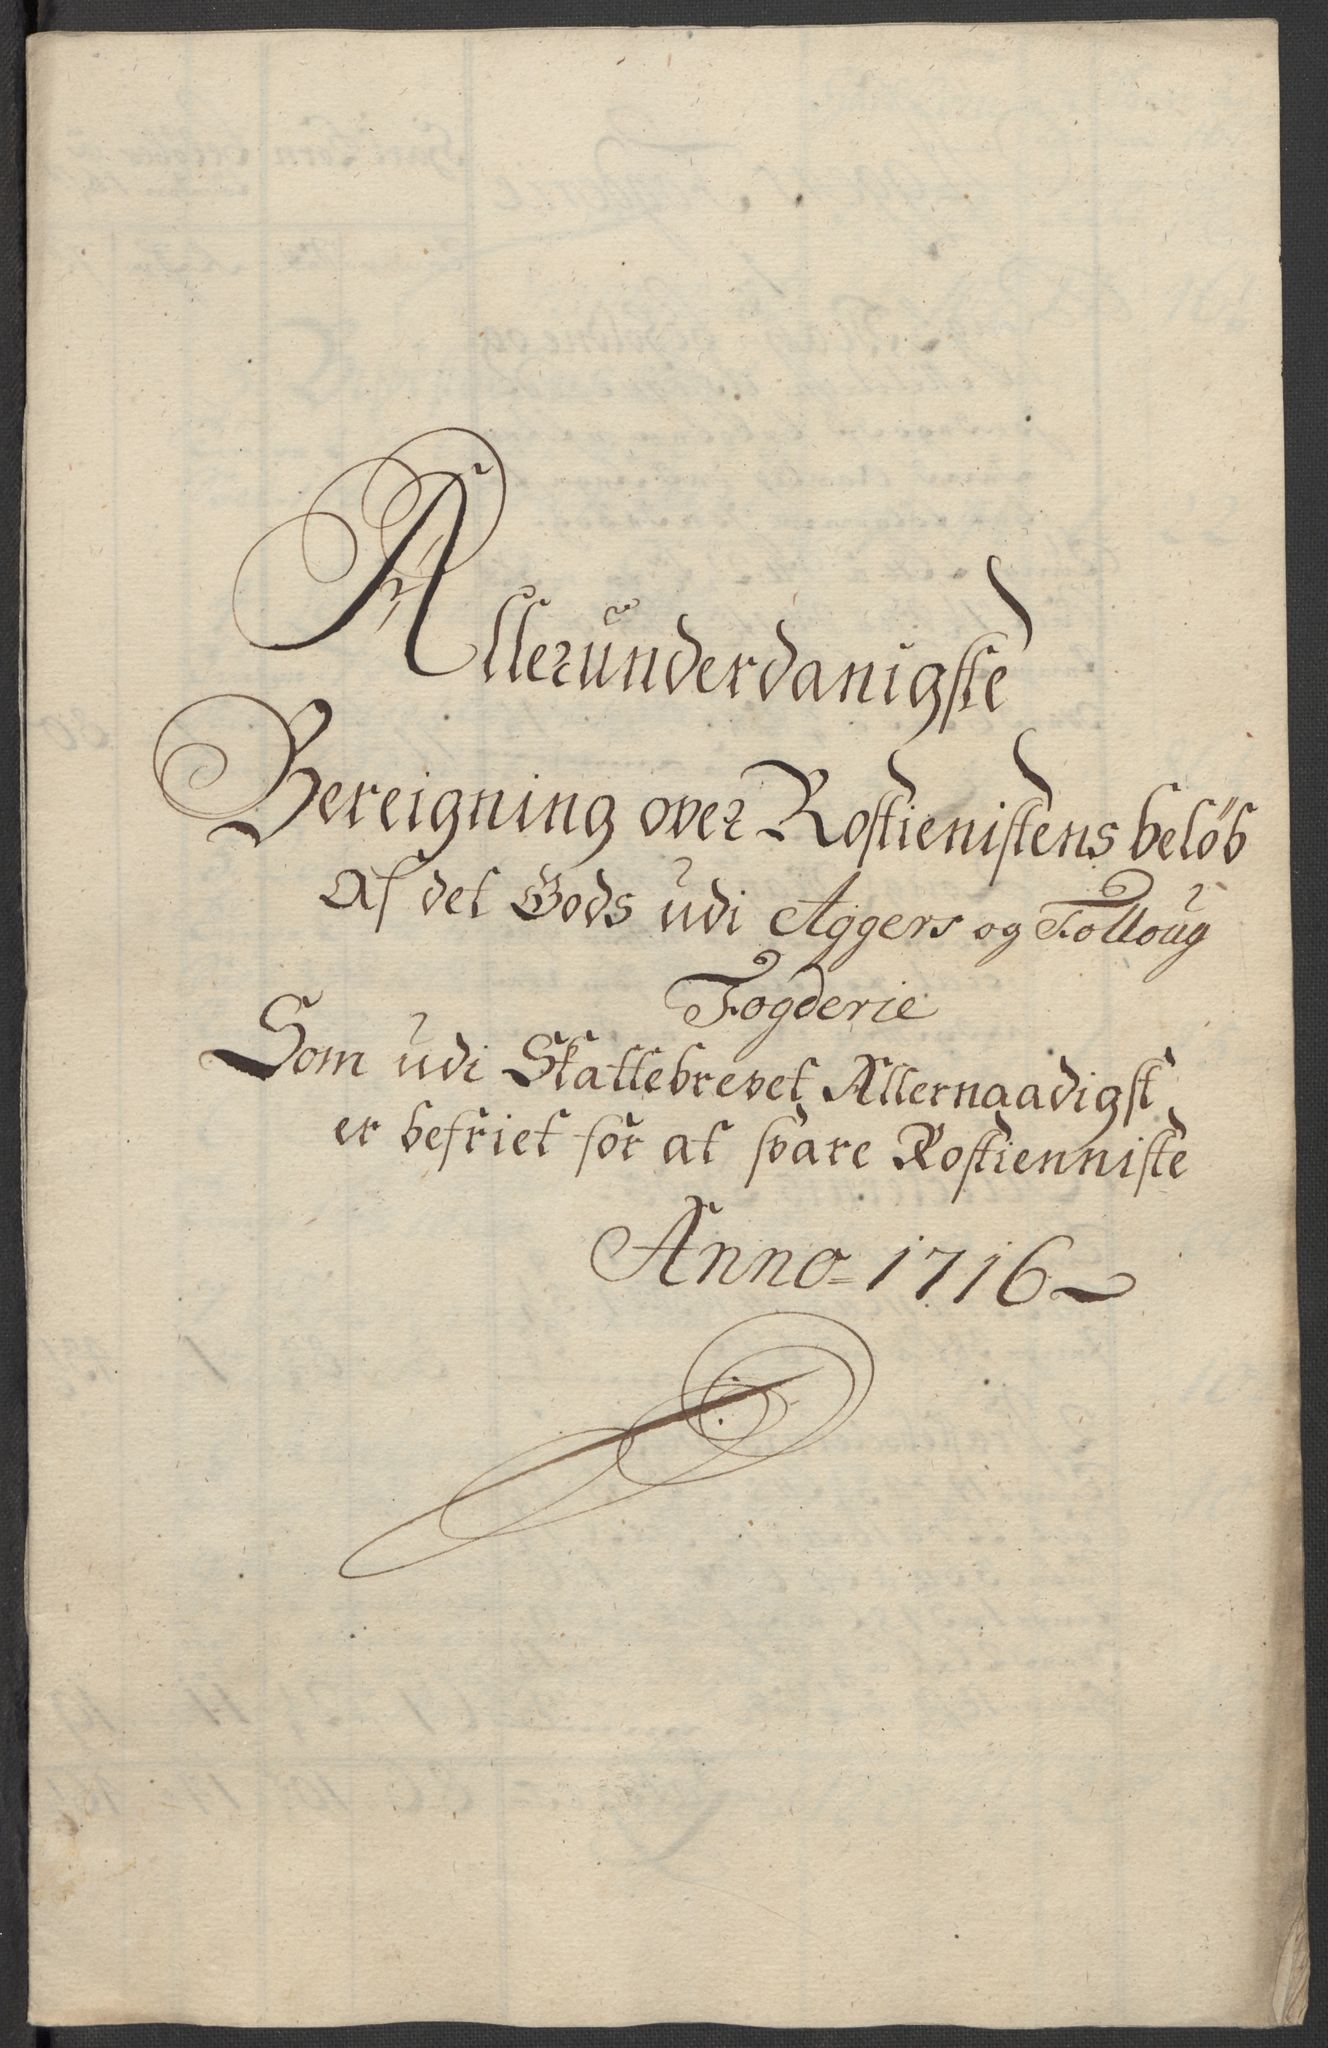 Allerunderdanigste
Bereigning over Rostienistens beløb
Af det Gods udi Aggers og Folloug
Fogderie
Som udi Skattebrevet Allernaadigst
er befriet for at svare Rostienniste
Anno 1716